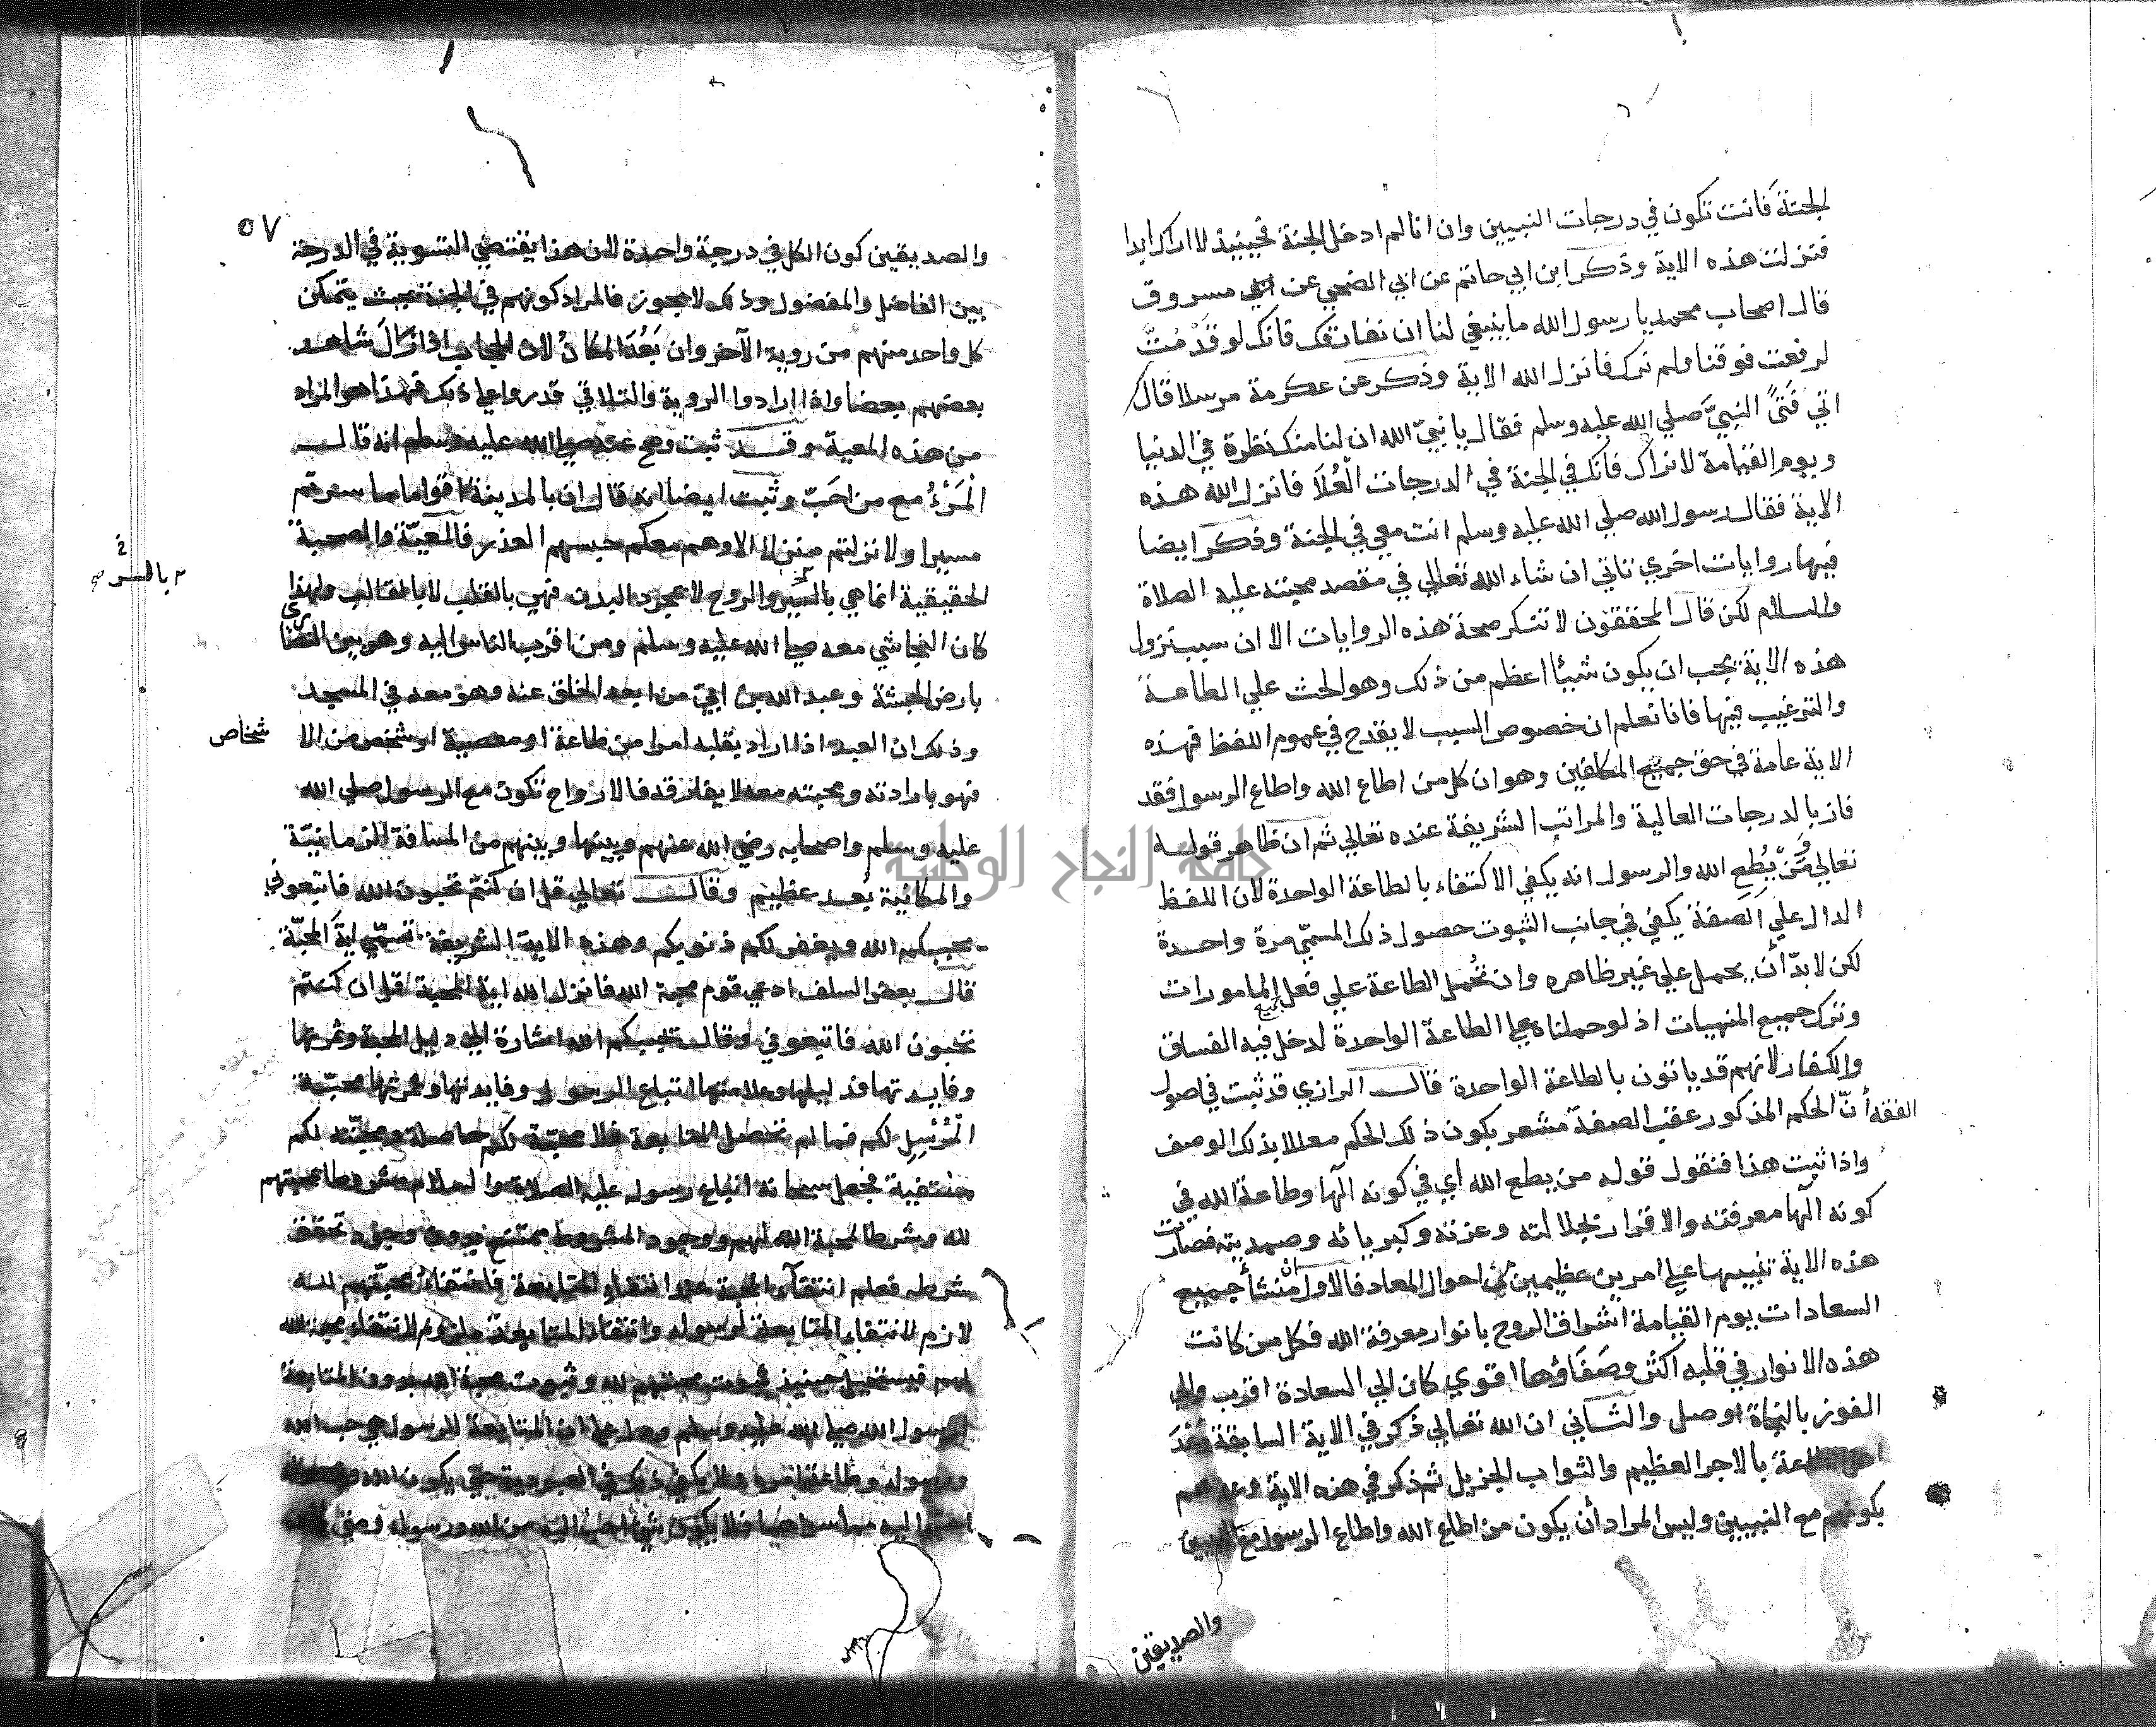 الجنة فانت تكون في درجات النبيين وان انا لم ادخل الجنة فحينيذ لا اراك ابدا
فنزلت هذه الاية وذكر ابن ابي حاتم عن ابي الضحي عن مسروق
قال اصحاب محمد يا رسول الله ما ينبغي لنا ان نفارقك فانك لو قدمت
لرفعت فوقنا ولم نرك فانزل الله الاية وذكر عن عكرمة مرسلا قال
اتي فتًى النبيَّ صلي الله عليه وسلم فقال يا نبيّ الله ان لنا منك نظرة في الدنيا
ويوم القيامة لا نراك فانك في الجنة في الدرجات العُلَا فانزل الله هذه
الاية فقال رسول الله صلي الله عليه وسلم انت معي في الجنة وذكر ايضا
فيها روايات اخري تاتي ان شاء الله تعالي في مقصد محبته عليه الصلاة
والسلام لكن قال المحققون لا تنكر صحة هذه الروايات الا ان سبب نزول
هذه الاية يجب ان يكون شيئا اعظم من ذلك وهو الحث علي الطاعة
والترغيب فيها فانا نعلم ان خصوص السبب لا يقدح في عموم اللفظ فهذه
الاية عامة في حق جميع المكلفين وهو ان كل من اطاع الله واطاع الرسول فقد
فاز بالدرجات العالية والمراتب الشريفة عنده تعالي ثم ان ظاهر قوله
تعالي ومَنْ يُطِعِ الله والرسول انه يكفي الاكتفاء بالطاعة الواحدة لان اللفظ
الدال علي الصفة يكفي في جانب الثبوت حصول ذلك المسمّي مرة واحدة
لكن لا بدّ أن يحمل علي غير ظاهره وان تُحمل الطاعة علي فعل جميع المامورات
وترك جميع المنهيات اذ لو حملناه علي الطاعة الواحدة لدخل فيه الفساق
والكفار لانهم قد ياتون بالطاعة الواحدة قال الرازي قد ثبت في اصول
الفقه أنّ الحكم المذكور عقب الصفة مشعر بكون ذلك الحكم معللا بذلك الوصف
واذا ثبت هذا فنقول قوله من يطع الله اي في كونه الٓها وطاعة الله في
كونه الٓها معرفته والاقرار بجلالته وعزته وكبريائه وصمديته فصارت
هذه الاية تنبيها علي امرين عظيمين من احوال المعاد فالاول ان منشأ جميع
السعادات يوم القيامة اشراق الروح بانوار معرفة الله فكل من كانت
هذه الانوار في قلبه اكثر وصَفَاؤها اقوي كان الي السعادة اقرب والي
الفوز بالنجاة اوصل والثاني ان الله تعالي ذكر في الاية السابقة وَعْدَ
اهل الطاعة بالاجر العظيم والثواب الجزيل ثم ذكر في هذه الاية وعدهم
بكونهم مع النبيين وليس المراد أن يكون من اطاع الله واطاع الرسول مع النبيين
والصديقين
٥٧
والصديقين كون الكل في درجة واحدة لان هذا يقتضي التسوية في الدرجة
بين الفاضل والمفضول وذلك لا يجوز فالمراد كونهم في الجنة بحيث يتمكن
كل واحد منهم من روية الآخر وان بَعُدَ المكانُ لان الحجاب اذا زَالَ شاهد
بعضهم بعضا واذا ارادوا الروية والتلاقي قدروا علي ذلك فهذا هو المراد
من هذه المعية وقد ثبت وصح عنه صلي الله عليه وسلم انه قال
الْمَرْءُ مع من احَبّ وثبت ايضا انه قال ان بالمدينة اقواما ما سرتم
مسيرا ولا نزلتم منزلا الا وهم معكم حبسهم العذر فالمعيّة والصحبة
الحقيقية انما هي بالسير والروح لا بمجرد البدن فهي بالقلب لا بالقالب ولهذا
بالسر صح
كان النجاشي معه صلي الله عليه وسلم ومن اقرب الناس اليه وهو بين النصاري
بارض الحبشة وعبد الله بن ابيّ من ابعد الخلق عنه وهو معه في المسجد
وذلك ان العبد اذا اراد بقلبه امرا من طاعة او معصية او شخص من الا شخاص
فهو بارادته ومحبته معه لا يفارقه فالارواح تكون مع الرسول صلي الله
عليه وسلم واصحابه رضي الله عنهم وبينها وبينهم من المسافة الزمانيّة
والمكانية بُعد عظيم وقال تعالي قل ان كنتم تحبون الله فاتبعوني
يحببكم الله ويغفر لكم ذنوبكم وهذه الاية الشريفة تسمّي ايةَ المحبّة
قال بعض السلف ادعي قوم محبة الله فانزل الله اية المحبة قل ان كنتم
تحبون الله فاتبعوني وقال يحببكم الله اشارة الي دليل المحبة وثمرتها
وفايدتها فدليلها وعلامتها اتباع الرسول وفايدتها وثمرتها محبّة
الْمُرْسِلِ لكم فما لم تحصل المتابعة فلا محبّة لكم حاصلة ومحبّته لكم
منتفية فجعل سبحانه اتباع رسوله عليه الصلاة والسلام مشروطا بمحبتهم
لله وشرطا لمحبة الله لهم ووجود المشروط ممتنع بدون وجود تحقق
شرطه فعلم انتفآء المحبة عند انتفاء المتابعة فانتفاءُ محبّتهم لله
لازم لانتفاء المتابعة لرسوله وانتفاء المتابعة ملزوم لانتفاء محبة الله
لهم فيستحيل حينيذ ثبوت محبتهم لله وثبوت محبة الله لهم بدون المتابعة
لرسول الله صلي الله عليه وسلم ودل علي ان المتابعة للرسول هي حب الله
ورسوله وطاعة امره ولا يكفي ذلك في العبودية حتي يكون الله ورسوله
احب اليه مما سواهما فلا يكون شيء احب اليه من الله ورسوله ومتي كان
جامعة النجاح الوطنية